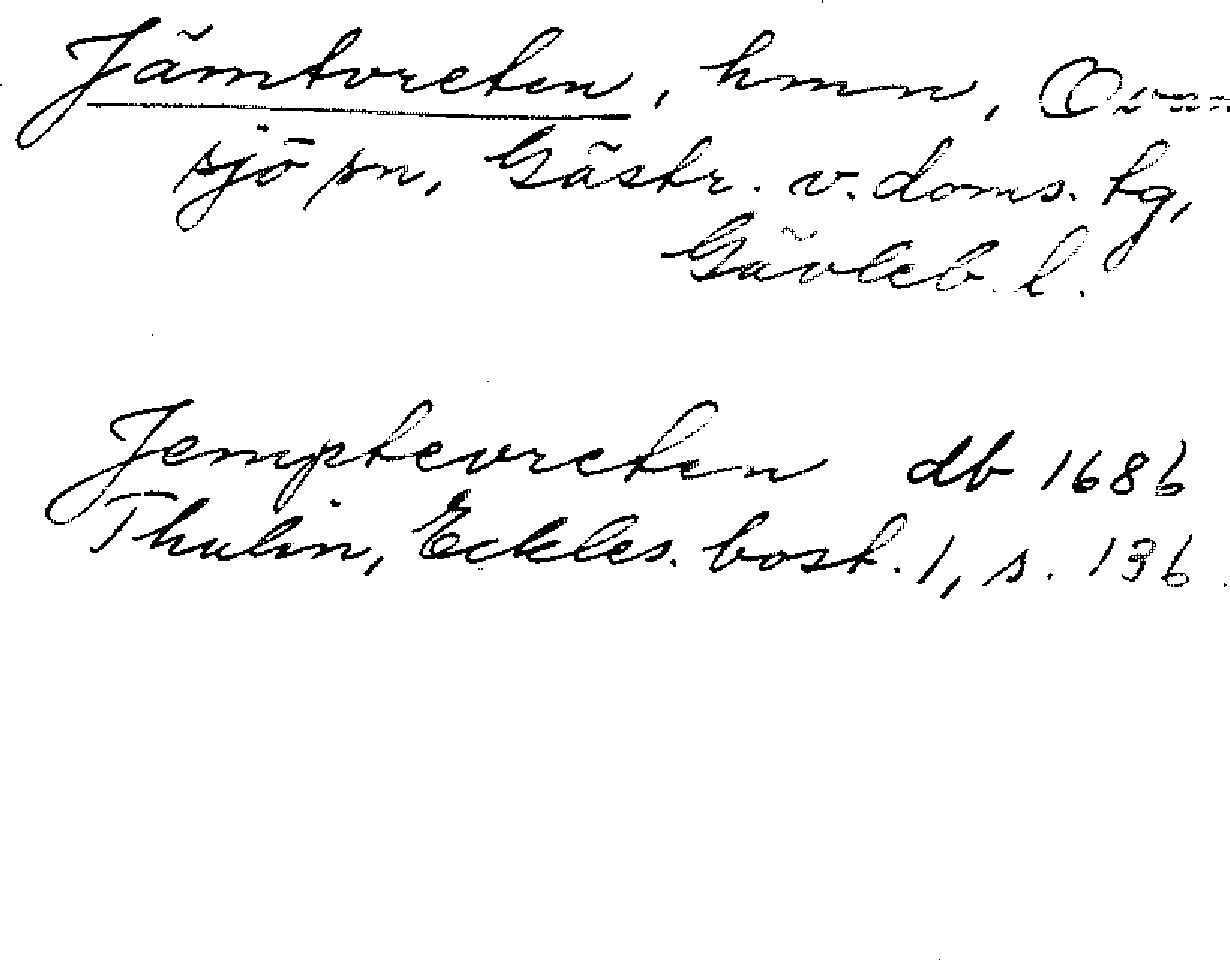 Jämtvreten, hmn, Ovan-
sjö sn, Gästr. v. doms. tg,
Gävleb. l.
Jemptevreten db 1686
Thulin, Eckles. bost. 1, s. 136.